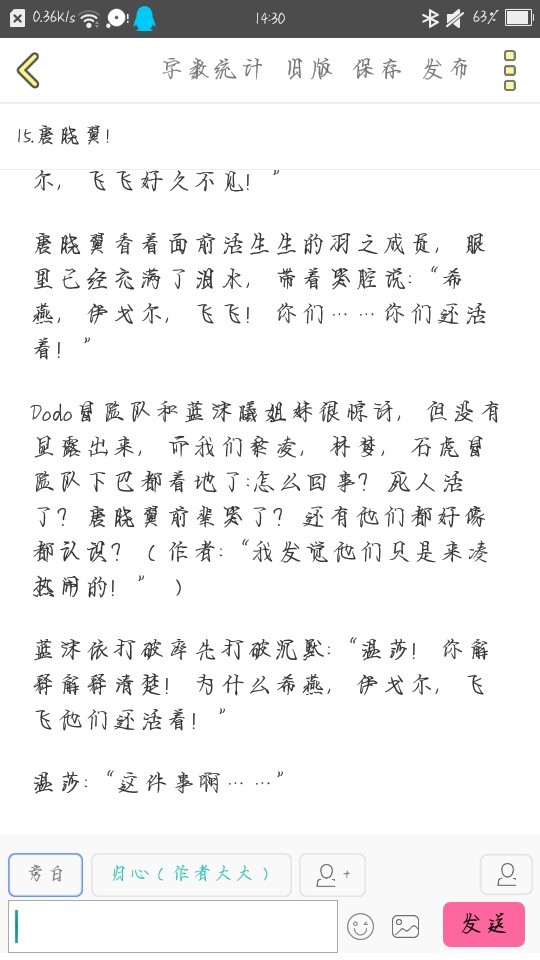 0.36K/s
14:30
63%
字数统计 旧版 保存 发布
15.唐晓翼!
尔, 飞飞好久不见! ”
唐晓翼看着面前活生生的羽之成员, 眼
里已经充满了泪水, 带着哭腔说:“希
燕, 伊戈尔, 飞飞! 你们……你们还活
着! ”
Dodo冒险队和蓝沫曦姐妹很惊讶, 但没有
显露出来, 而我们黎凌, 林梦, 石虎冒
险队下巴都着地了:怎么回事? 死人活
了? 唐晓翼前辈哭了? 还有他们都好像
都认识? ( 作者:“我发觉他们只是来凑
热闹的! ” )
蓝沫依打破率先打破沉默:“温莎! 你解
释解释清楚! 为什么希燕, 伊戈尔, 飞
飞他们还活着! ”
温莎:“这件事啊……”
旁白
归心( 作者大大 )
+
发送